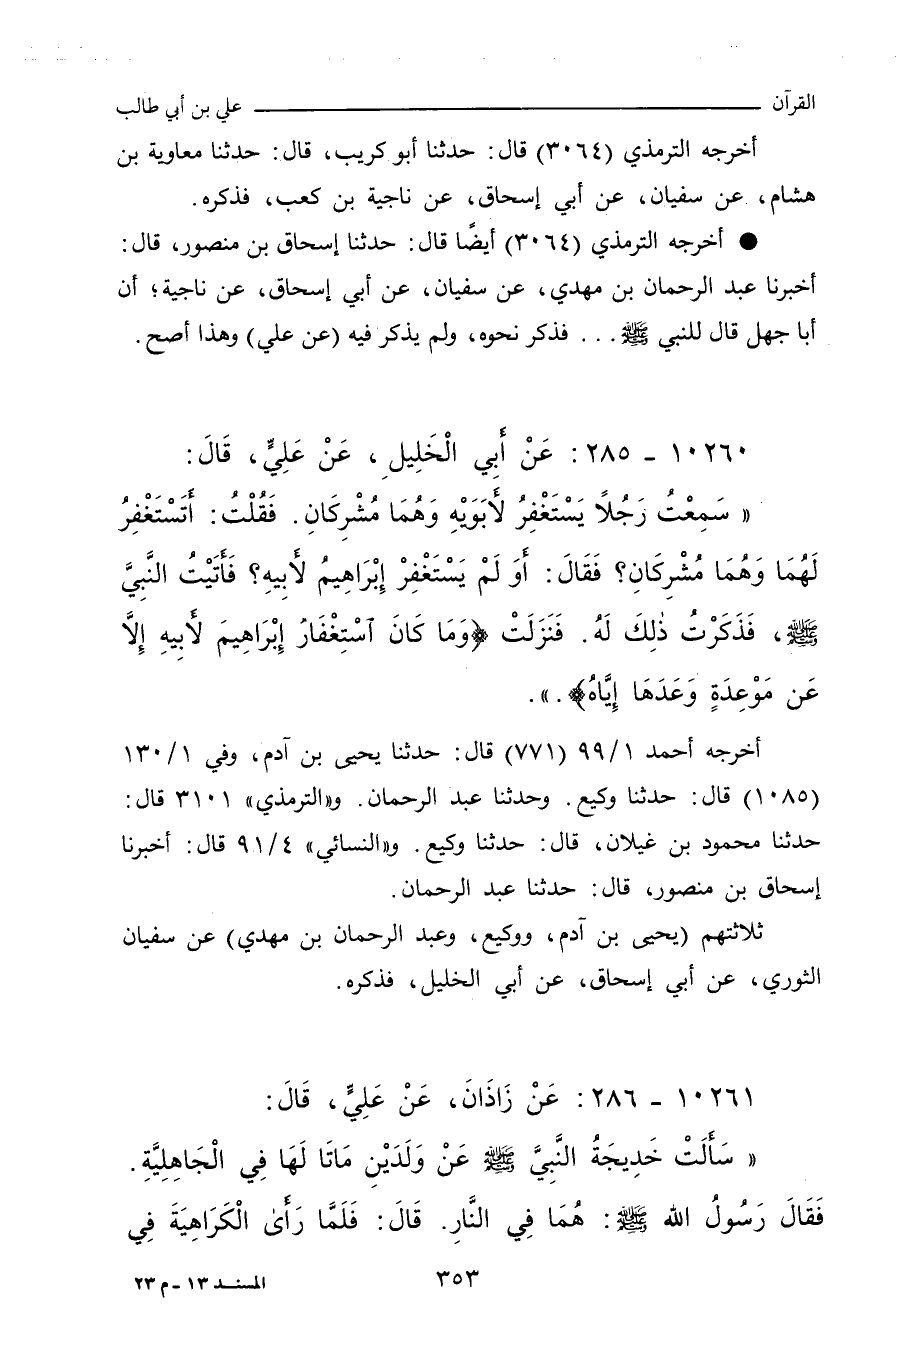 القرآن علي بن أبي طالب
أخرجه الترمذي (٣٠٦٤) قال: حدثنا أبو كريب، قال: حدثنا معاوية بن
هشام، عن سفيان، عن أبي إسحاق، عن ناجية بن كعب، فذكره.
● أخرجه الترمذي (٣٠٦٤) أيضًا قال: حدثنا إسحاق بن منصور، قال:
أخبرنا عبد الرحمان بن مهدي، عن سفيان، عن أبي إسحاق، عن ناجية؛ أن
أبا جهل قال للنبي ﷺ... فذكر نحوه، ولم يذكر فيه (عن علي) وهذا أصح.
١٠٢٦٠ - ٢٨٥: عَنْ أَبِي الْخَلِيلِ، عَنْ عَلِيٍّ، قَالَ:
« سَمِعْتُ رَجُلًا يَسْتَغْفِرُ لأَبَوَيْهِ وَهُمَا مُشْرِكَانِ. فَقُلْتُ: أَتَسْتَغْفِرُ
لَهُمَا وَهُمَا مُشْرِكَانِ؟ فَقَالَ: أَوَ لَمْ يَسْتَغْفِرْ إِبْرَاهِيمُ لأَبِيهِ؟ فَأَتَيْتُ النَّبِيَّ
ﷺ، فَذَكَرْتُ ذٰلِكَ لَهُ. فَنَزَلَتْ ﴿وَمَا كَانَ ٱسْتِغْفَارُ إِبْرَاهِيمَ لأَبِيهِ إِلَّا
عَن مَوْعِدَةٍ وَعَدَهَا إِيَّاهُ﴾.».
أخرجه أحمد ٩٩/١ (٧٧١) قال: حدثنا يحيى بن آدم، وفي ١٣٠/١
(١٠٨٥) قال: حدثنا وكيع. وحدثنا عبد الرحمان. و«الترمذي» ٣١٠١ قال:
حدثنا محمود بن غيلان، قال: حدثنا وكيع. و«النسائي» ٩١/٤ قال: أخبرنا
إسحاق بن منصور، قال: حدثنا عبد الرحمان.
ثلاثتهم (يحيى بن آدم، ووكيع، وعبد الرحمان بن مهدي) عن سفيان
الثوري، عن أبي إسحاق، عن أبي الخليل، فذكره.
١٠٢٦١ - ٢٨٦: عَنْ زَاذَانَ، عَنْ عَلِيٍّ، قَالَ:
« سَأَلَتْ خَدِيجَةُ النَّبِيَّ ﷺ عَنْ وَلَدَيْنِ مَاتَا لَهَا فِي الْجَاهِلِيَّةِ.
فَقَالَ رَسُولُ الله ﷺ: هُمَا فِي النَّارِ. قَالَ: فَلَمَّا رَأَىٰ الْكَرَاهِيَةَ فِي
٣٥٣ المسند ١٣ - م ٢٣